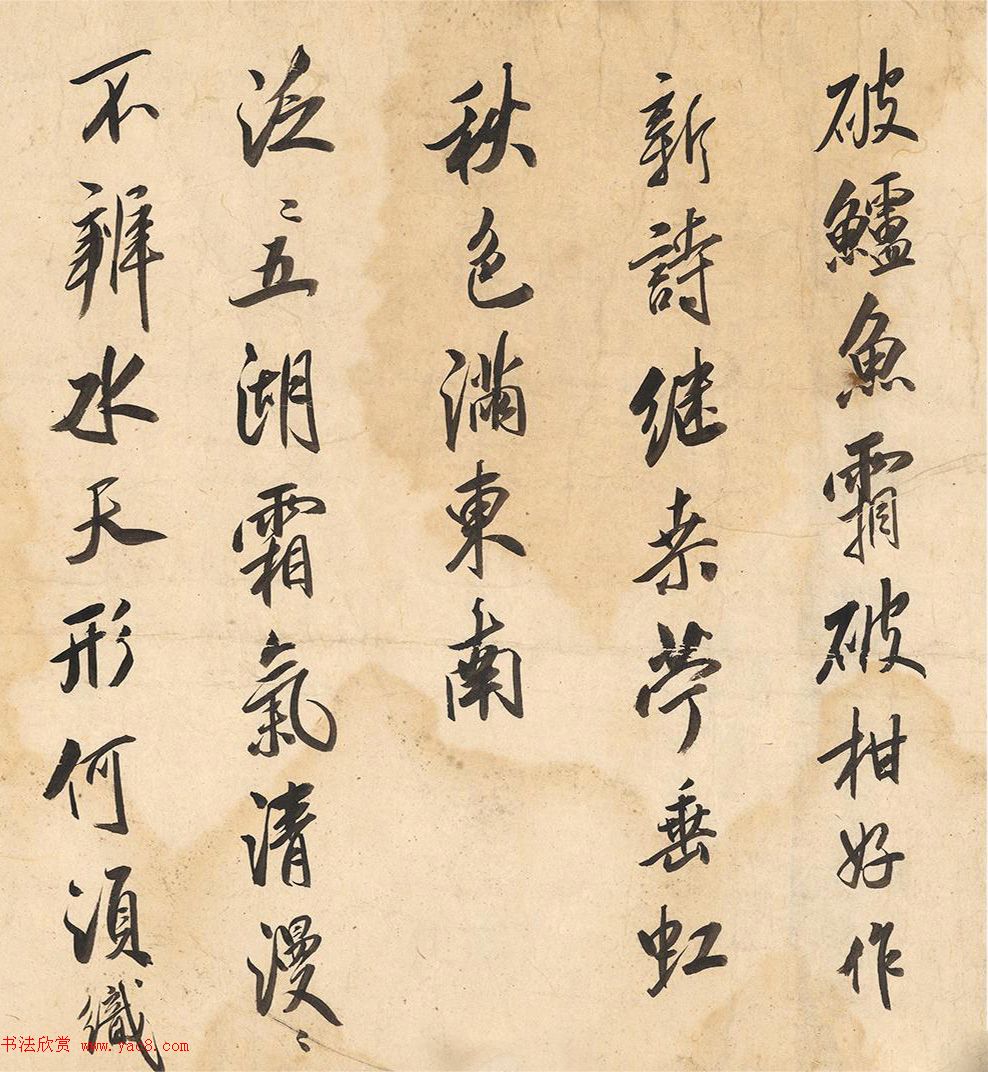 破鱸魚霜破柑好作
新詩継桒苧垂虹
秋色滿東南
泛〻五湖霜氣清漫〻
不辨水天形何須織
书法欣赏 www.yac8.com